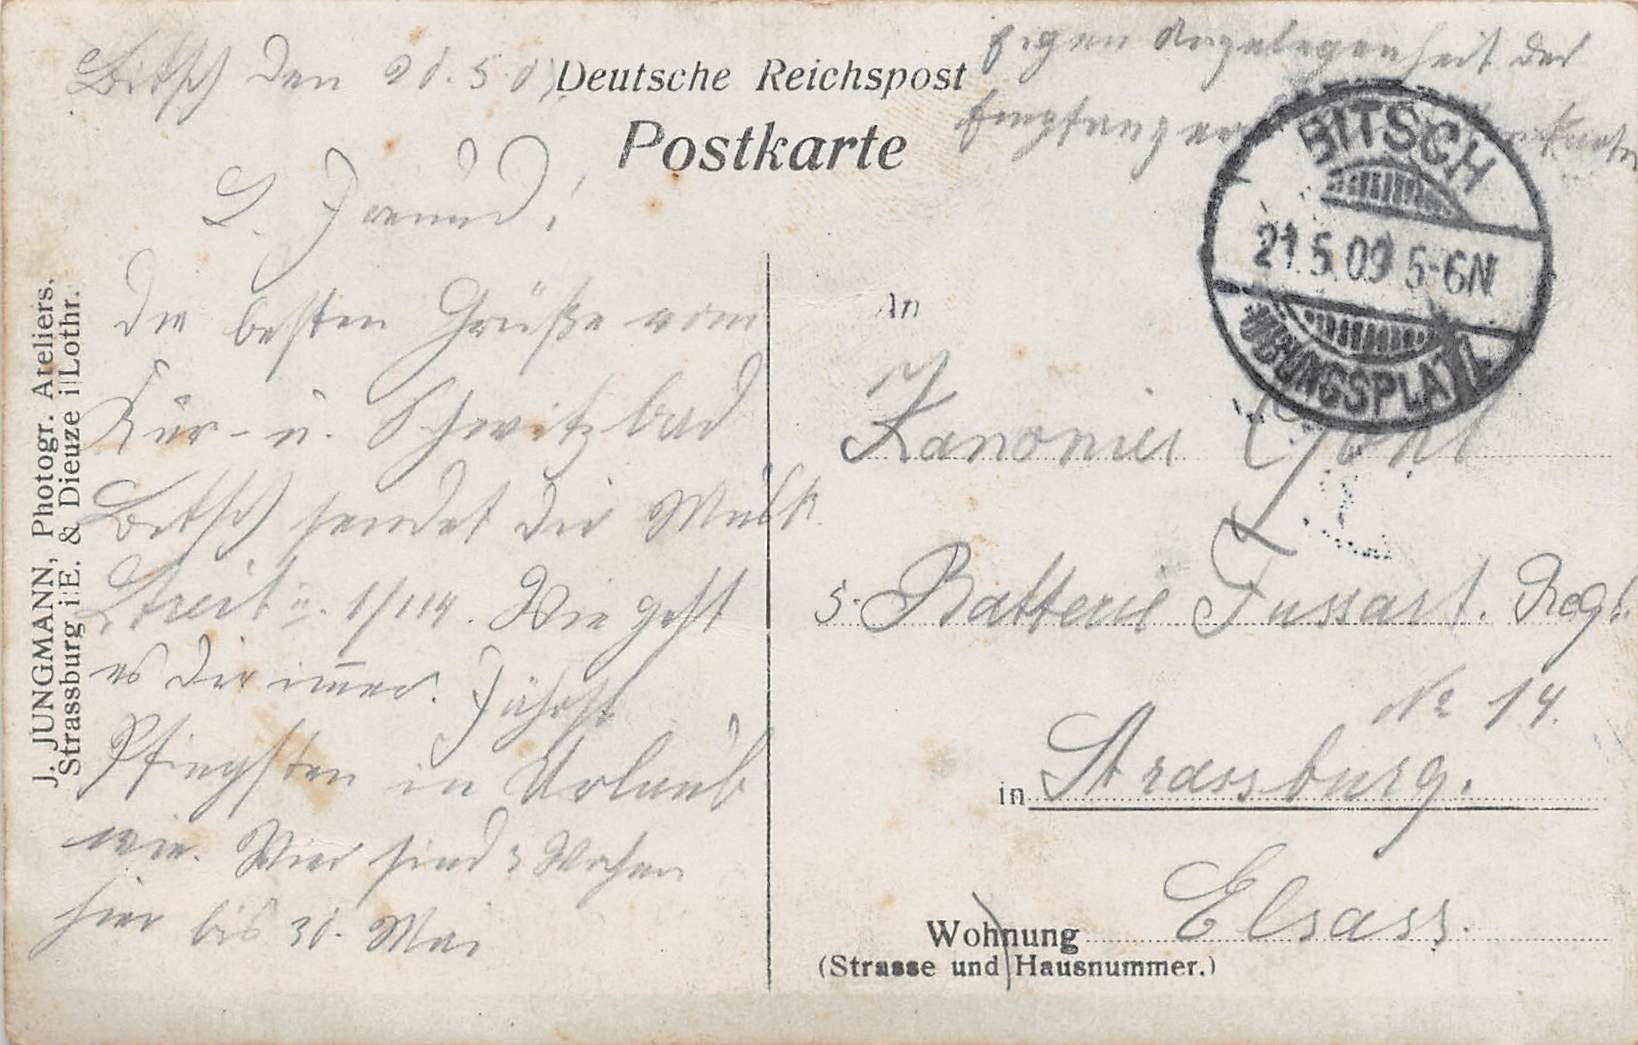 Bitsch den 20.5.09.
Deutsche Reichspost
Postkarte
Eigen Angelegenheit des
Empfängers
BITSCH
21.5.09 5-6N
ÜBUNGSPLATZ
L. Freund!
Die besten Grüße vom
Kur- u. Schwitzbad
Bitsch sendet dir Musk.
Streit II. 1/114. Wie geht
es dir immer. Fährst
Pfingsten in Urlaub
wie. Wier sind 3 Wochen
hier bis 30. Mai
An
Kanonier
5. Batterie Fussart. Regt.
No 14.
in Strassburg.
Elsass.
Wohnung
(Strasse und Hausnummer.)
J. JUNGMANN, Photogr. Ateliers.
Strassburg i/E. & Dieuze i/Lothr.